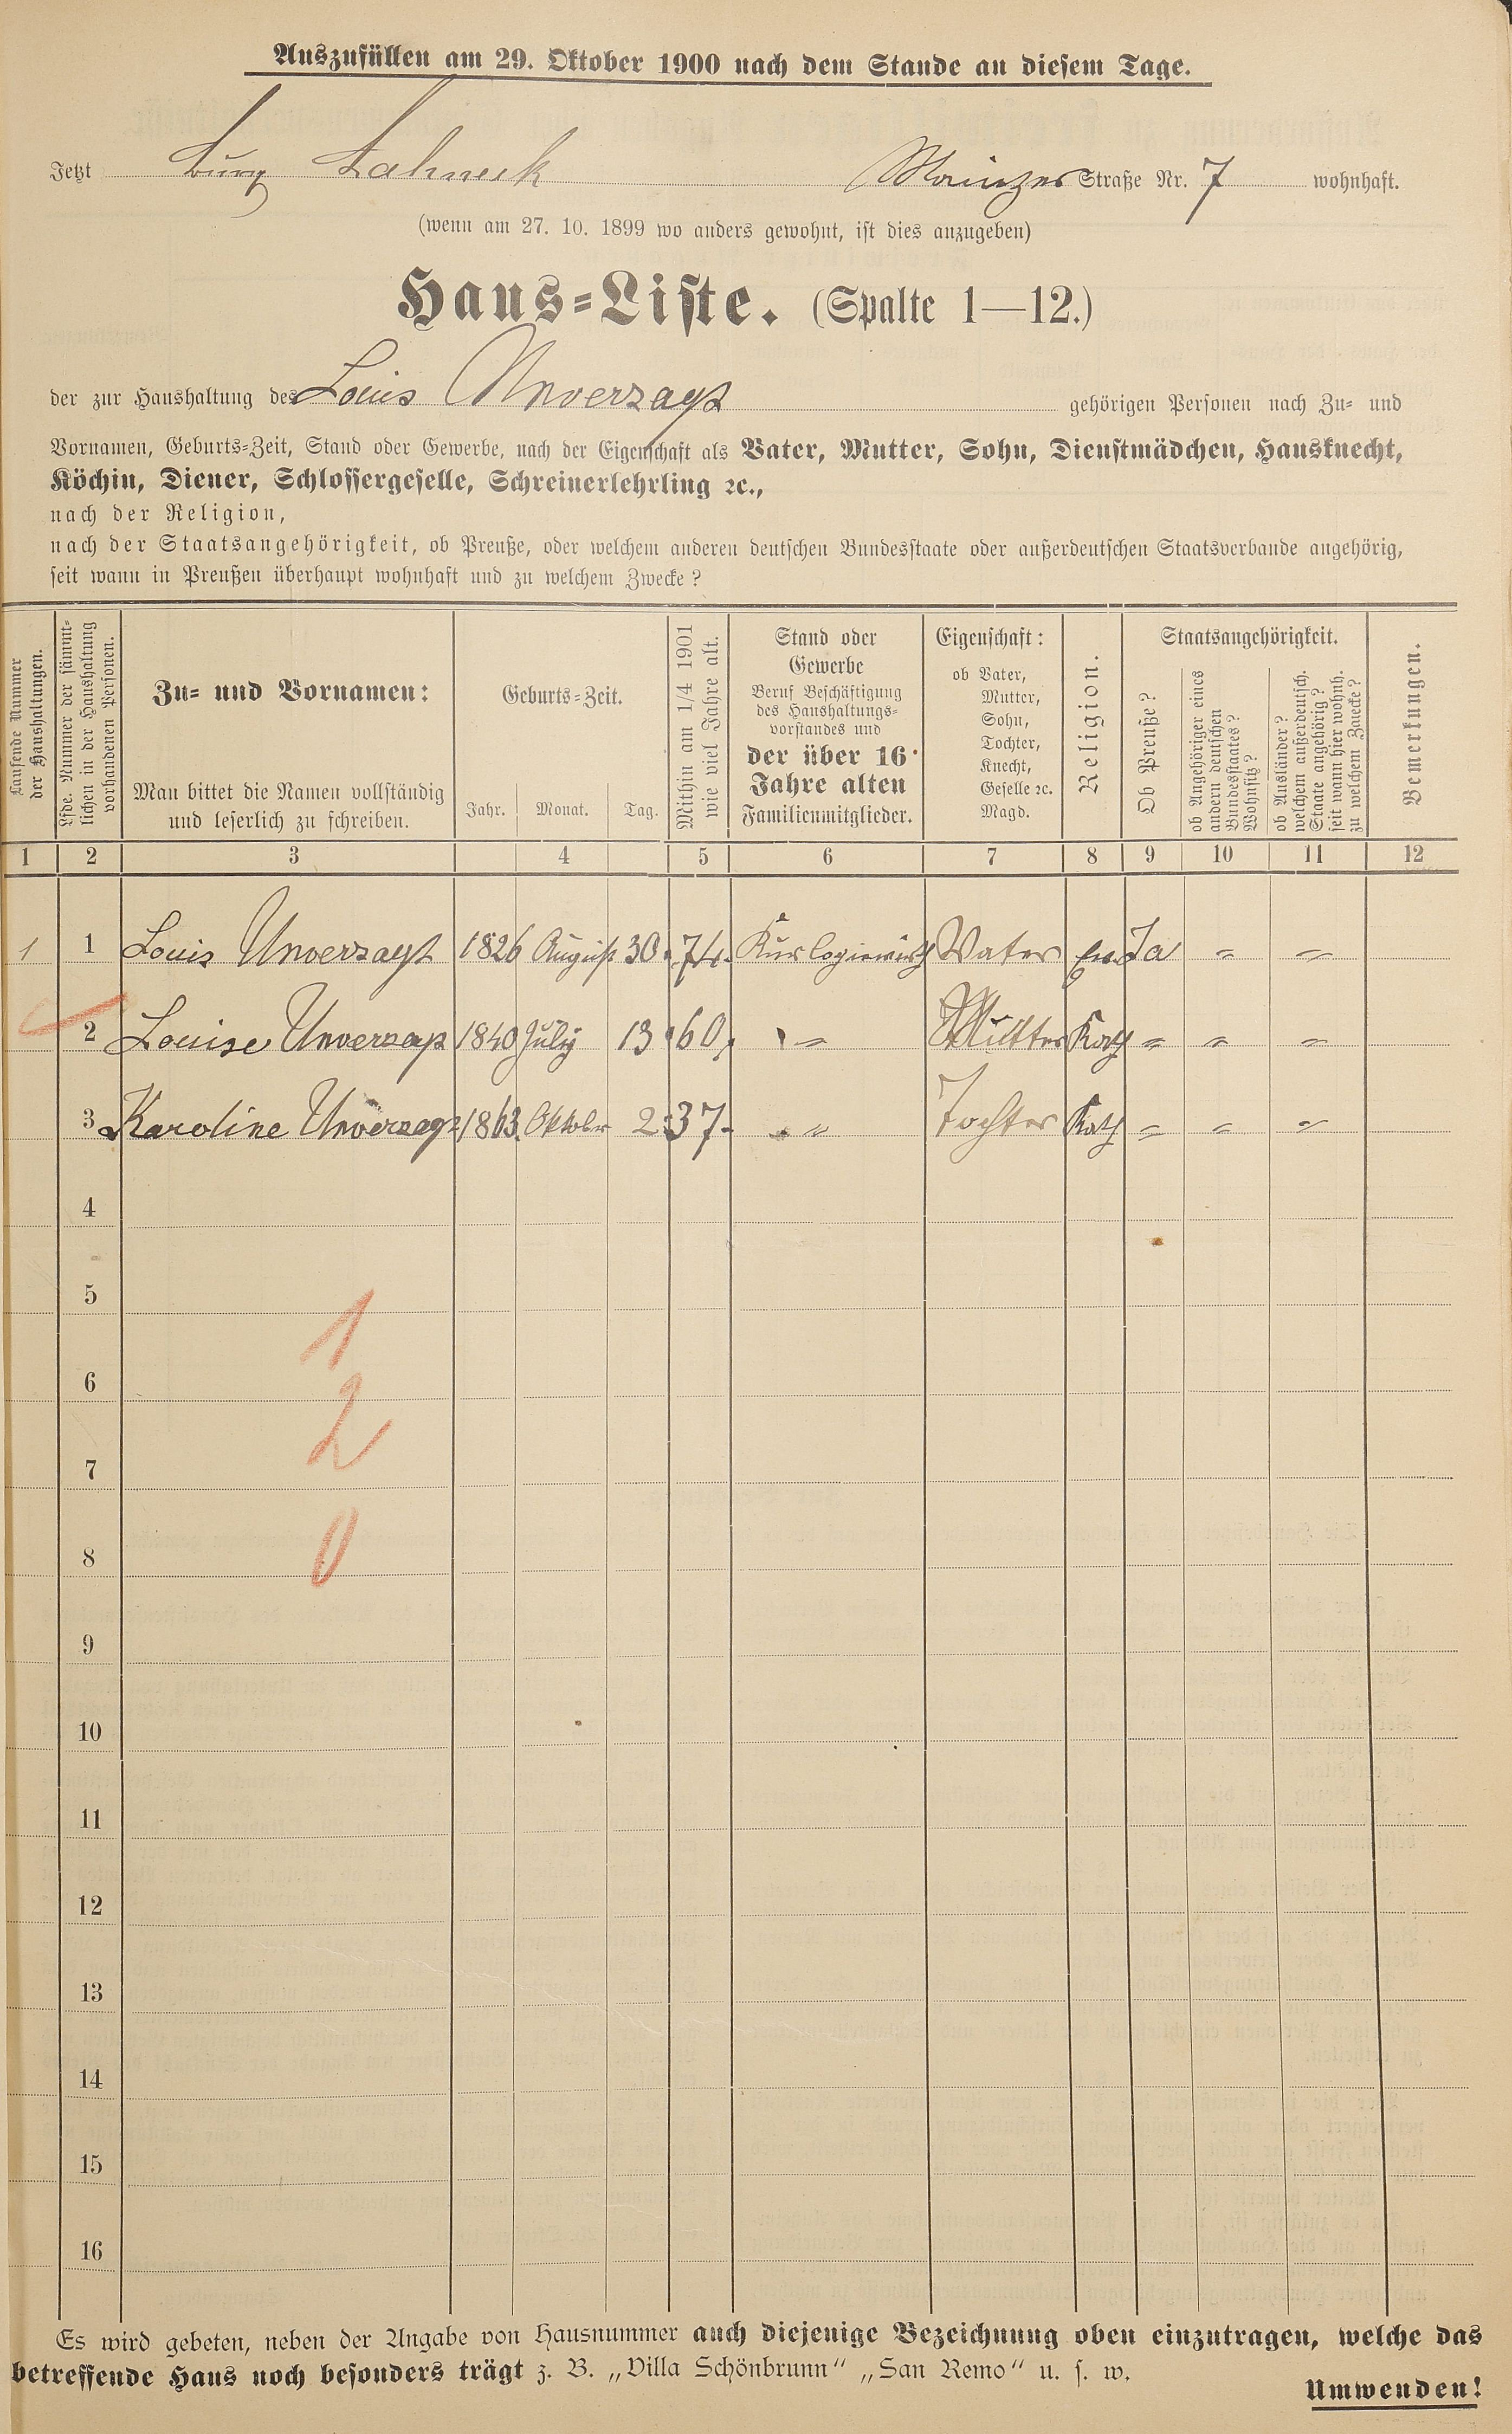 Auszufüllen am 29. Oktober 1900 nach dem Stande an diesem Tage.
Jetzt Burg Lahneck Mainzer Straße Nr. 7 wohnhaft.
(wenn am 27. 10. 1899 wo anders gewohnt, ist dies anzugeben)
Haus-Liste. (Spalte 1—12.)
der zur Haushaltung des Louis Unverzagt gehörigen Personen nach Zu- und
Vornamen, Geburts-Zeit, Stand oder Gewerbe, nach der Eigenschaft als Vater, Mutter, Sohn, Dienstmädchen, Hausknecht,
Köchin, Diener, Schlossergeselle, Schreinerlehrling ꝛc.,
nach der Religion,
nach der Staatsangehörigkeit, ob Preuße, oder welchem anderen deutschen Bundesstaate oder außerdeutschen Staatsverbande angehörig,
seit wann in Preußen überhaupt wohnhaft und zu welchem Zwecke?
Laufende Nummer
der Haushaltungen.
Lfde. Nummer der sämmt-
lichen in der Haushaltung
vorhandenen Personen.
Zu- und Vornamen:
Man bittet die Namen vollständig
und leserlich zu schreiben.
Geburts-Zeit.
Jahr. Monat. Tag.
Mithin am 1/4 1901
wie viel Jahre alt.
Stand oder
Gewerbe
Beruf Beschäftigung
des Haushaltungs-
vorstandes und
der über 16
Jahre alten
Familienmitglieder.
Eigenschaft:
ob Vater,
Mutter,
Sohn,
Tochter,
Knecht,
Geselle ꝛc.
Magd.
Religion.
Staatsangehörigkeit.
Ob Preuße?
ob Angehöriger eines
andern deutschen
Bundesstaates?
Wohnsitz?
ob Ausländer?
welchem außerdeutsch.
Staate angehörig?
seit wann hier wohnh.
zu welchem Zwecke?
Bemerkungen.
1 2 3 4 5 6 7 8 9 10 11 12
1 1 Louis Unverzagt 1826 August 30. 74. Kurlogiewirth Vater Ev. Ja " "
2 Louise Unverzagt 1840 July 13 60, " Mutter Kath " " "
3 Karoline Unverzagt 1863 Oktober 2 37. " Tochter Kath " " "
4
5
1
6
2
7
8
0
9
10
11
12
13
14
15
16
Es wird gebeten, neben der Angabe von Hausnummer auch diejenige Bezeichnung oben einzutragen, welche das
betreffende Haus noch besonders trägt z. B. „Villa Schönbrunn“ „San Remo“ u. s. w.
Umwenden!